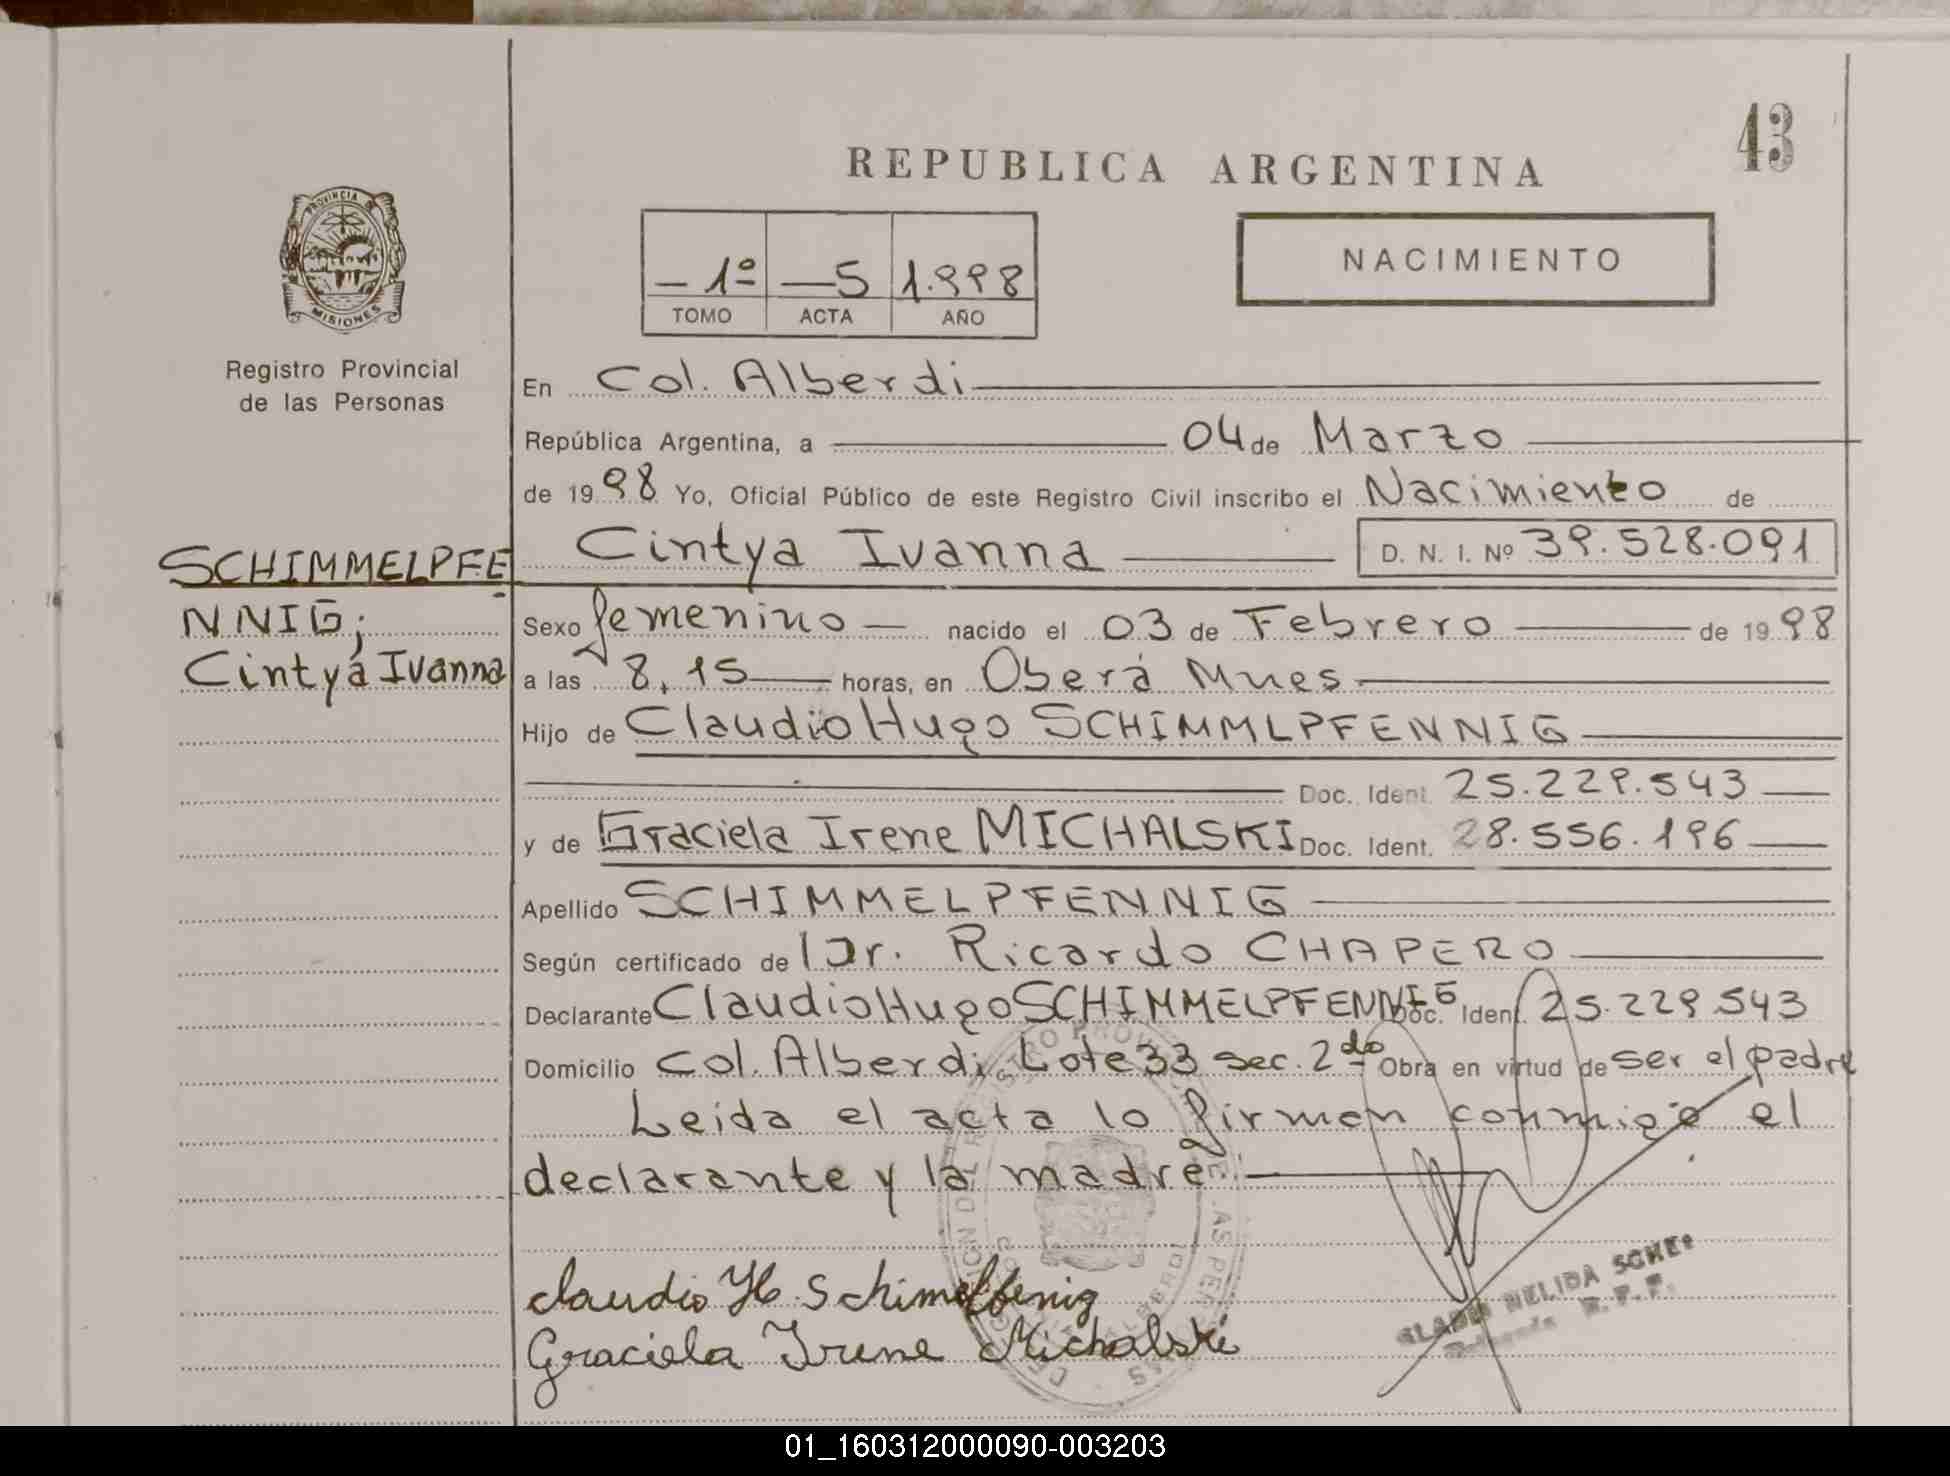 43
REPUBLICA ARGENTINA
PROVINCIA DE
MISIONES
Registro Provincial
de las Personas
- 1º — 5 1.998
TOMO ACTA AÑO
NACIMIENTO
En Col. Alberdi
República Argentina, a 04 de Marzo
de 1998 Yo, Oficial Público de este Registro Civil inscribo el Nacimiento de
Cintya Ivanna D. N. I. Nº 39.528.091
SCHIMMELPFE
NNIG;
Cintya Ivanna
Sexo femenino nacido el 03 de Febrero de 1998
a las 8,15 horas, en Oberá Mnes
Hijo de Claudio Hugo SCHIMMLPFENNIG
Doc. Ident. 25.229.543
y de Graciela Irene MICHALSKI Doc. Ident. 28.556.196
Apellido SCHIMMELPFENNIG
Según certificado de Dr. Ricardo CHAPERO
Declarante Claudio Hugo SCHIMMELPFENNIG Doc. Ident. 25.229.543
Domicilio Col. Alberdi Lote 33 sec. 2do Obra en virtud de ser el padre
Leida el acta lo firman conmigo el
declarante y la madre
Claudio H. Schimelfenig
Graciela Irene Michalski
GLADIS NELIDA
01_160312000090-003203